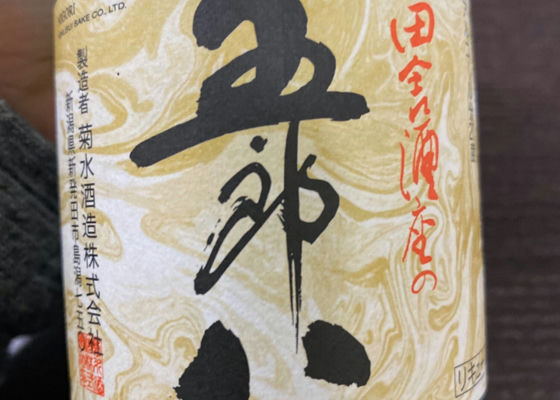 IGORI
KIKUSUI SAKE CO., LTD.
田舎酒屋の
五郎八
製造者 菊水酒造株式会社
新潟県新発田市島潟七五
リキュ